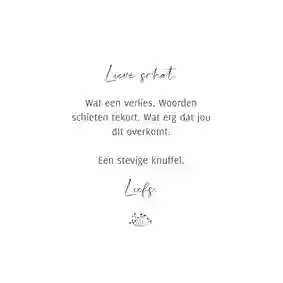 Lieve schat,
Wat een verlies. Woorden
schieten tekort. Wat erg dat jou
dit overkomt.
Een stevige knuffel.
Liefs,